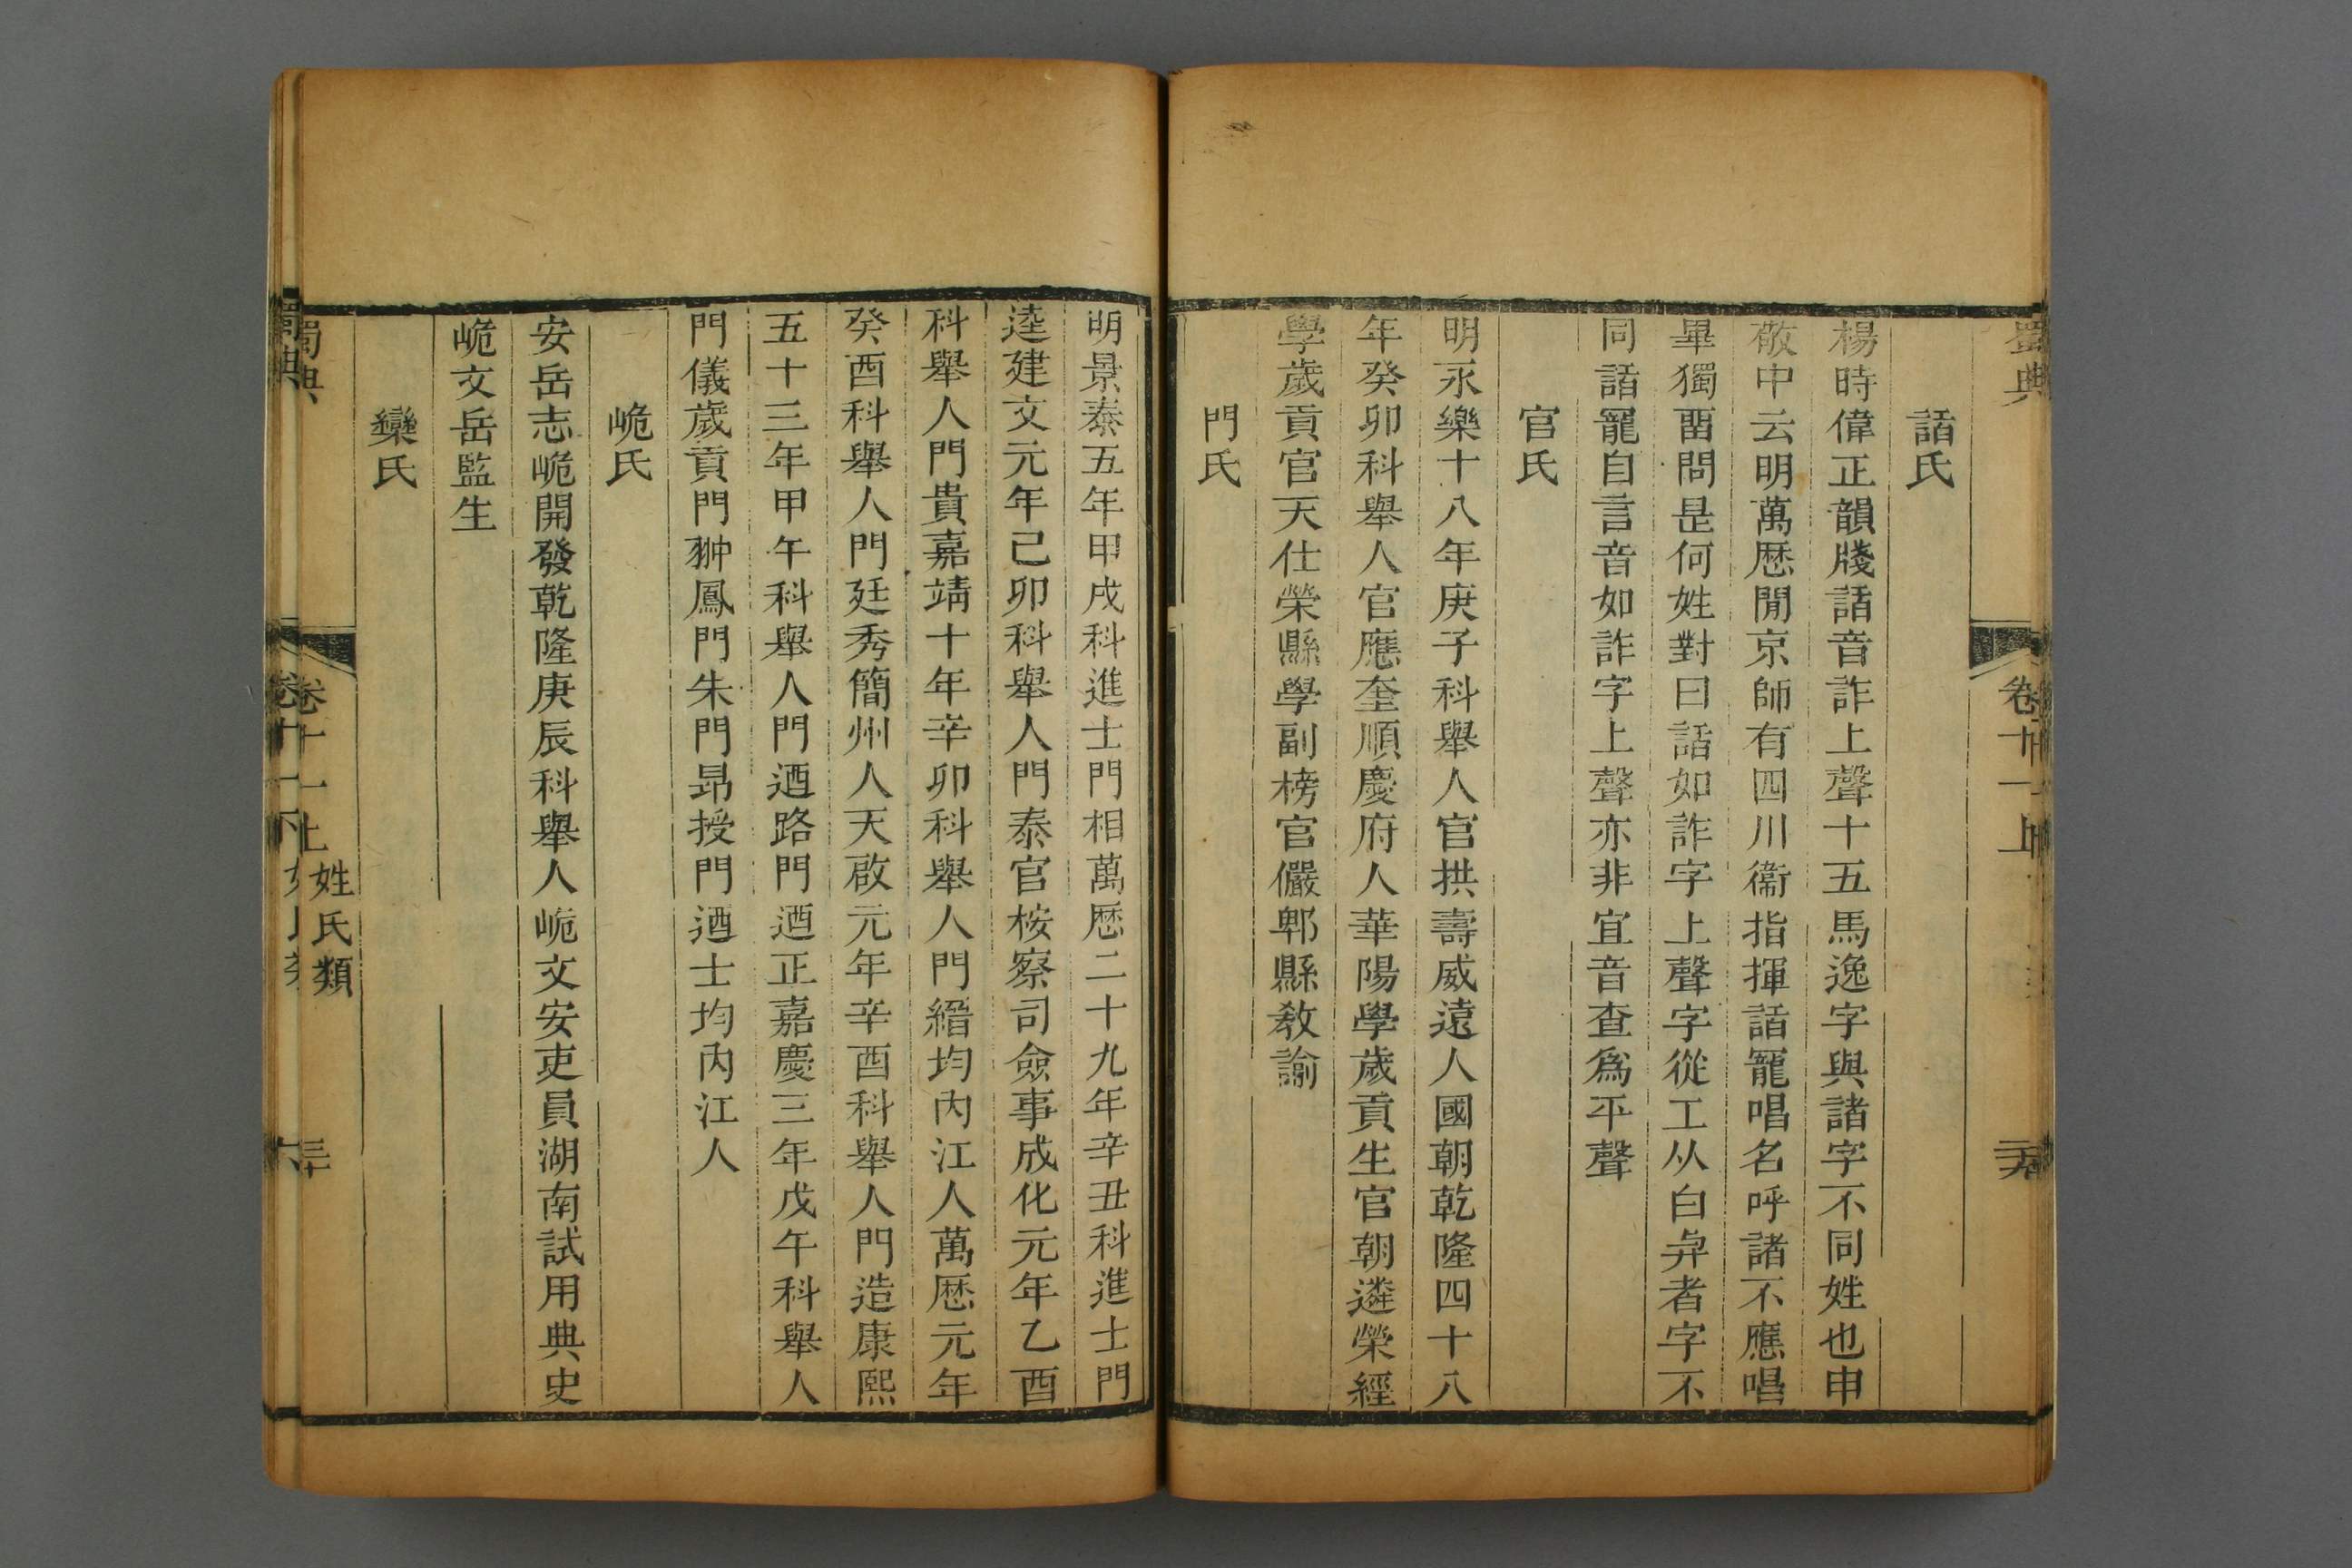 蜀典
卷十一上
話氏
楊時偉正韻牋話音詐上聲十五馬逸字與諸字不同姓也申
敬中云明萬厯閒京師有四川衞指揮話寵唱名呼諸不應唱
畢獨畱問是何姓對曰話如詐字上聲字從工从白㒵者字不
同話寵自言音如詐字上聲亦非宜音查爲平聲
官氏
明永樂十八年庚子科舉人官拱壽威遠人國朝乾隆四十八
年癸卯科舉人官應奎順慶府人華陽學歲貢生官朝遴榮經
學歲貢官天仕榮縣學副榜官儼郫縣敎諭
門氏
明景泰五年甲戌科進士門相萬厯二十九年辛丑科進士門
逵建文元年己卯科舉人門泰官桉察司僉事成化元年乙酉
科舉人門貴嘉靖十年辛卯科舉人門縉均內江人萬厯元年
癸酉科舉人門廷秀簡州人天啟元年辛酉科舉人門造康熙
五十三年甲午科舉人門迺路門迺正嘉慶三年戊午科舉人
門儀歲貢門翀鳳門朱門昻授門迺士均內江人
峗氏
安岳志峗開發乾隆庚辰科舉人峗文安吏員湖南試用典史
峗文岳監生
欒氏
蜀典
卷十一上
姓氏類
三十